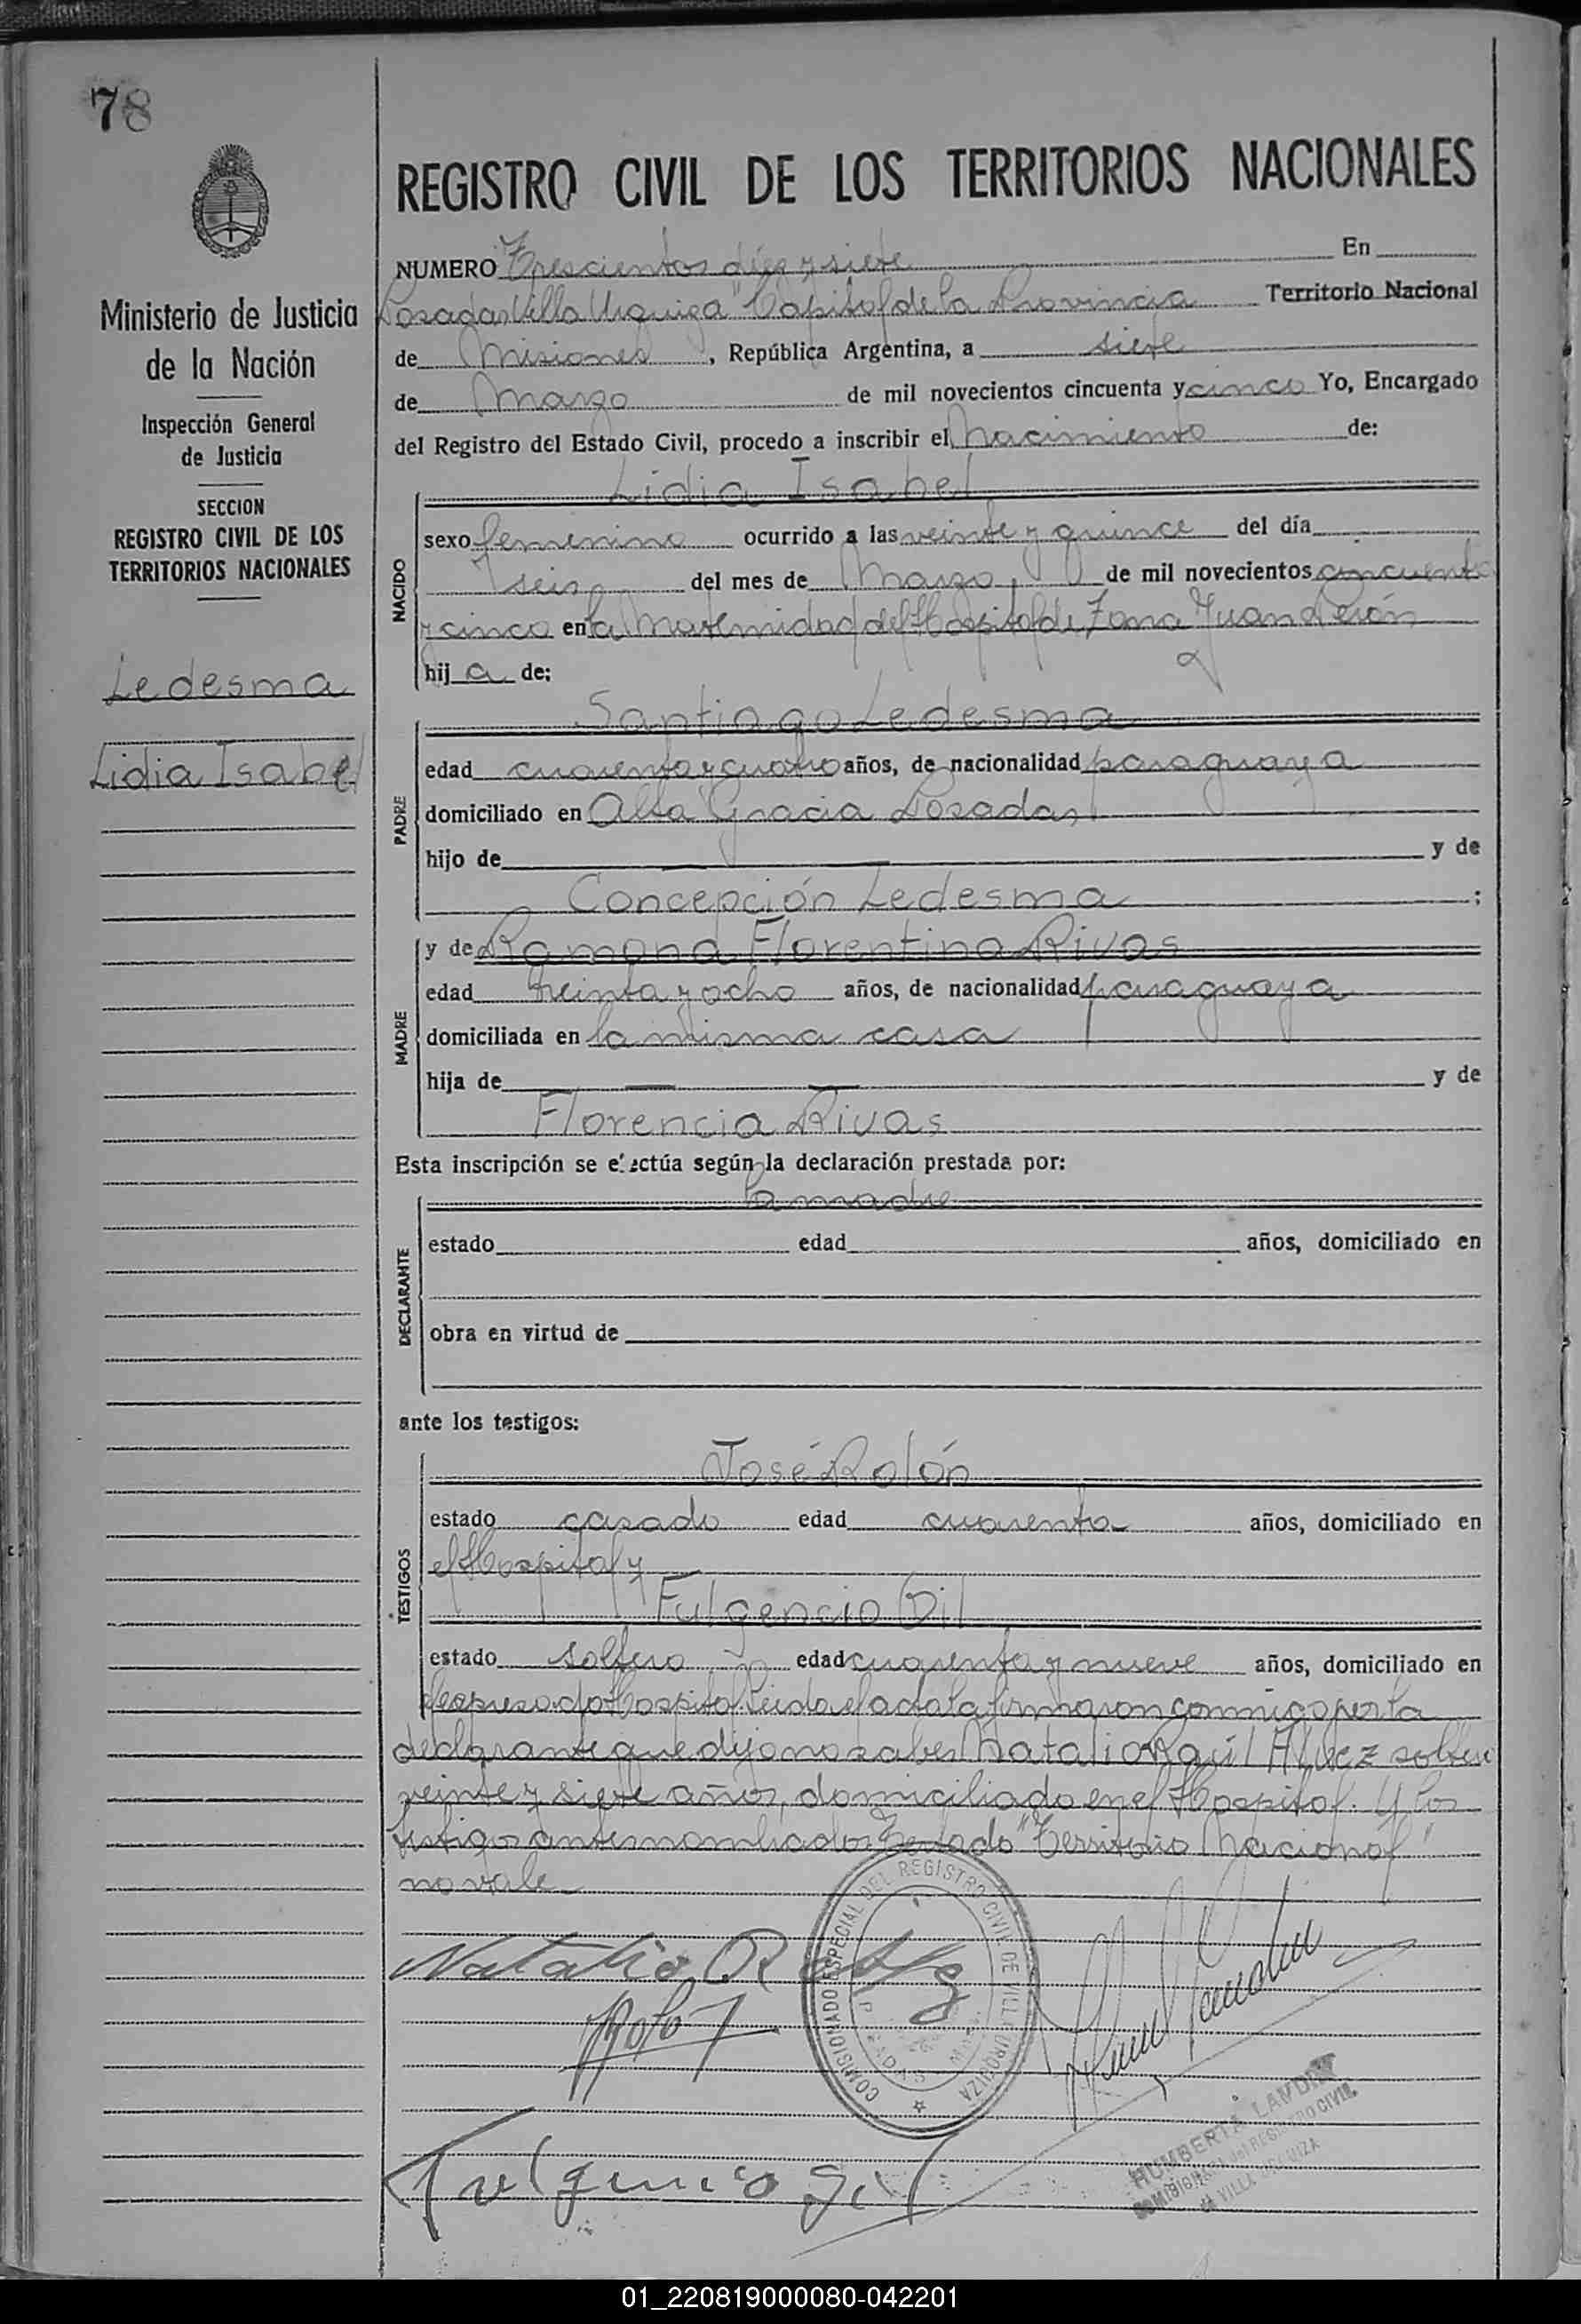 78
REGISTRO CIVIL DE LOS TERRITORIOS NACIONALES
Ministerio de Justicia
de la Nación
Inspección General
de Justicia
SECCION
REGISTRO CIVIL DE LOS
TERRITORIOS NACIONALES
Ledesma
Lidia Isabel
NUMERO Trescientos diez y siete En
Posadas Villa Urquiza "Capital de la Provincia Territorio Nacional
de Misiones, República Argentina, a siete
de Marzo de mil novecientos cincuenta y cinco Yo, Encargado
del Registro del Estado Civil, procedo a inscribir el Nacimiento de:
NACIDO
Lidia Isabel
sexo femenino ocurrido a las veinte y quince del día
seis del mes de Marzo, de mil novecientos cincuenta
y cinco en la Maternidad del Hospital de Zona Juan Perón
hija de:
PADRE
Santiago Ledesma
edad cuarenta y cuatro años, de nacionalidad paraguaya
domiciliado en Alta Gracia Posadas
hijo de y de
Concepción Ledesma ;
MADRE
y de Ramona Florentina Rivas
edad treinta y ocho años, de nacionalidad paraguaya
domiciliada en la misma casa
hija de y de
Florencia Rivas
Esta inscripción se efectúa según la declaración prestada por:
DECLARANTE
la madre
estado edad años, domiciliado en
obra en virtud de
ante los testigos:
TESTIGOS
José Rolón
estado casado edad cuarenta años, domiciliado en
el Hospital y
Fulgencio Gil
estado soltero edad cuarenta y nueve años, domiciliado en
el expresado Hospital. Leida el acta la firmaron conmigo por la
declarante que dijo no saber Natalio Raúl soltero
veinte y siete años, domiciliado en el Hospital. Y los
testigos antes nombrados Testado "Territorio Nacional"
no vale
Natalio R
Rolón
COMISIONADO ESPECIAL DEL REGISTRO CIVIL DE VILLA URQUIZA
POSADAS
Fulgencio Gil
HUMBERTA
COMISIONADA del REGISTRO CIVIL
de VILLA URQUIZA
01_220819000080-042201